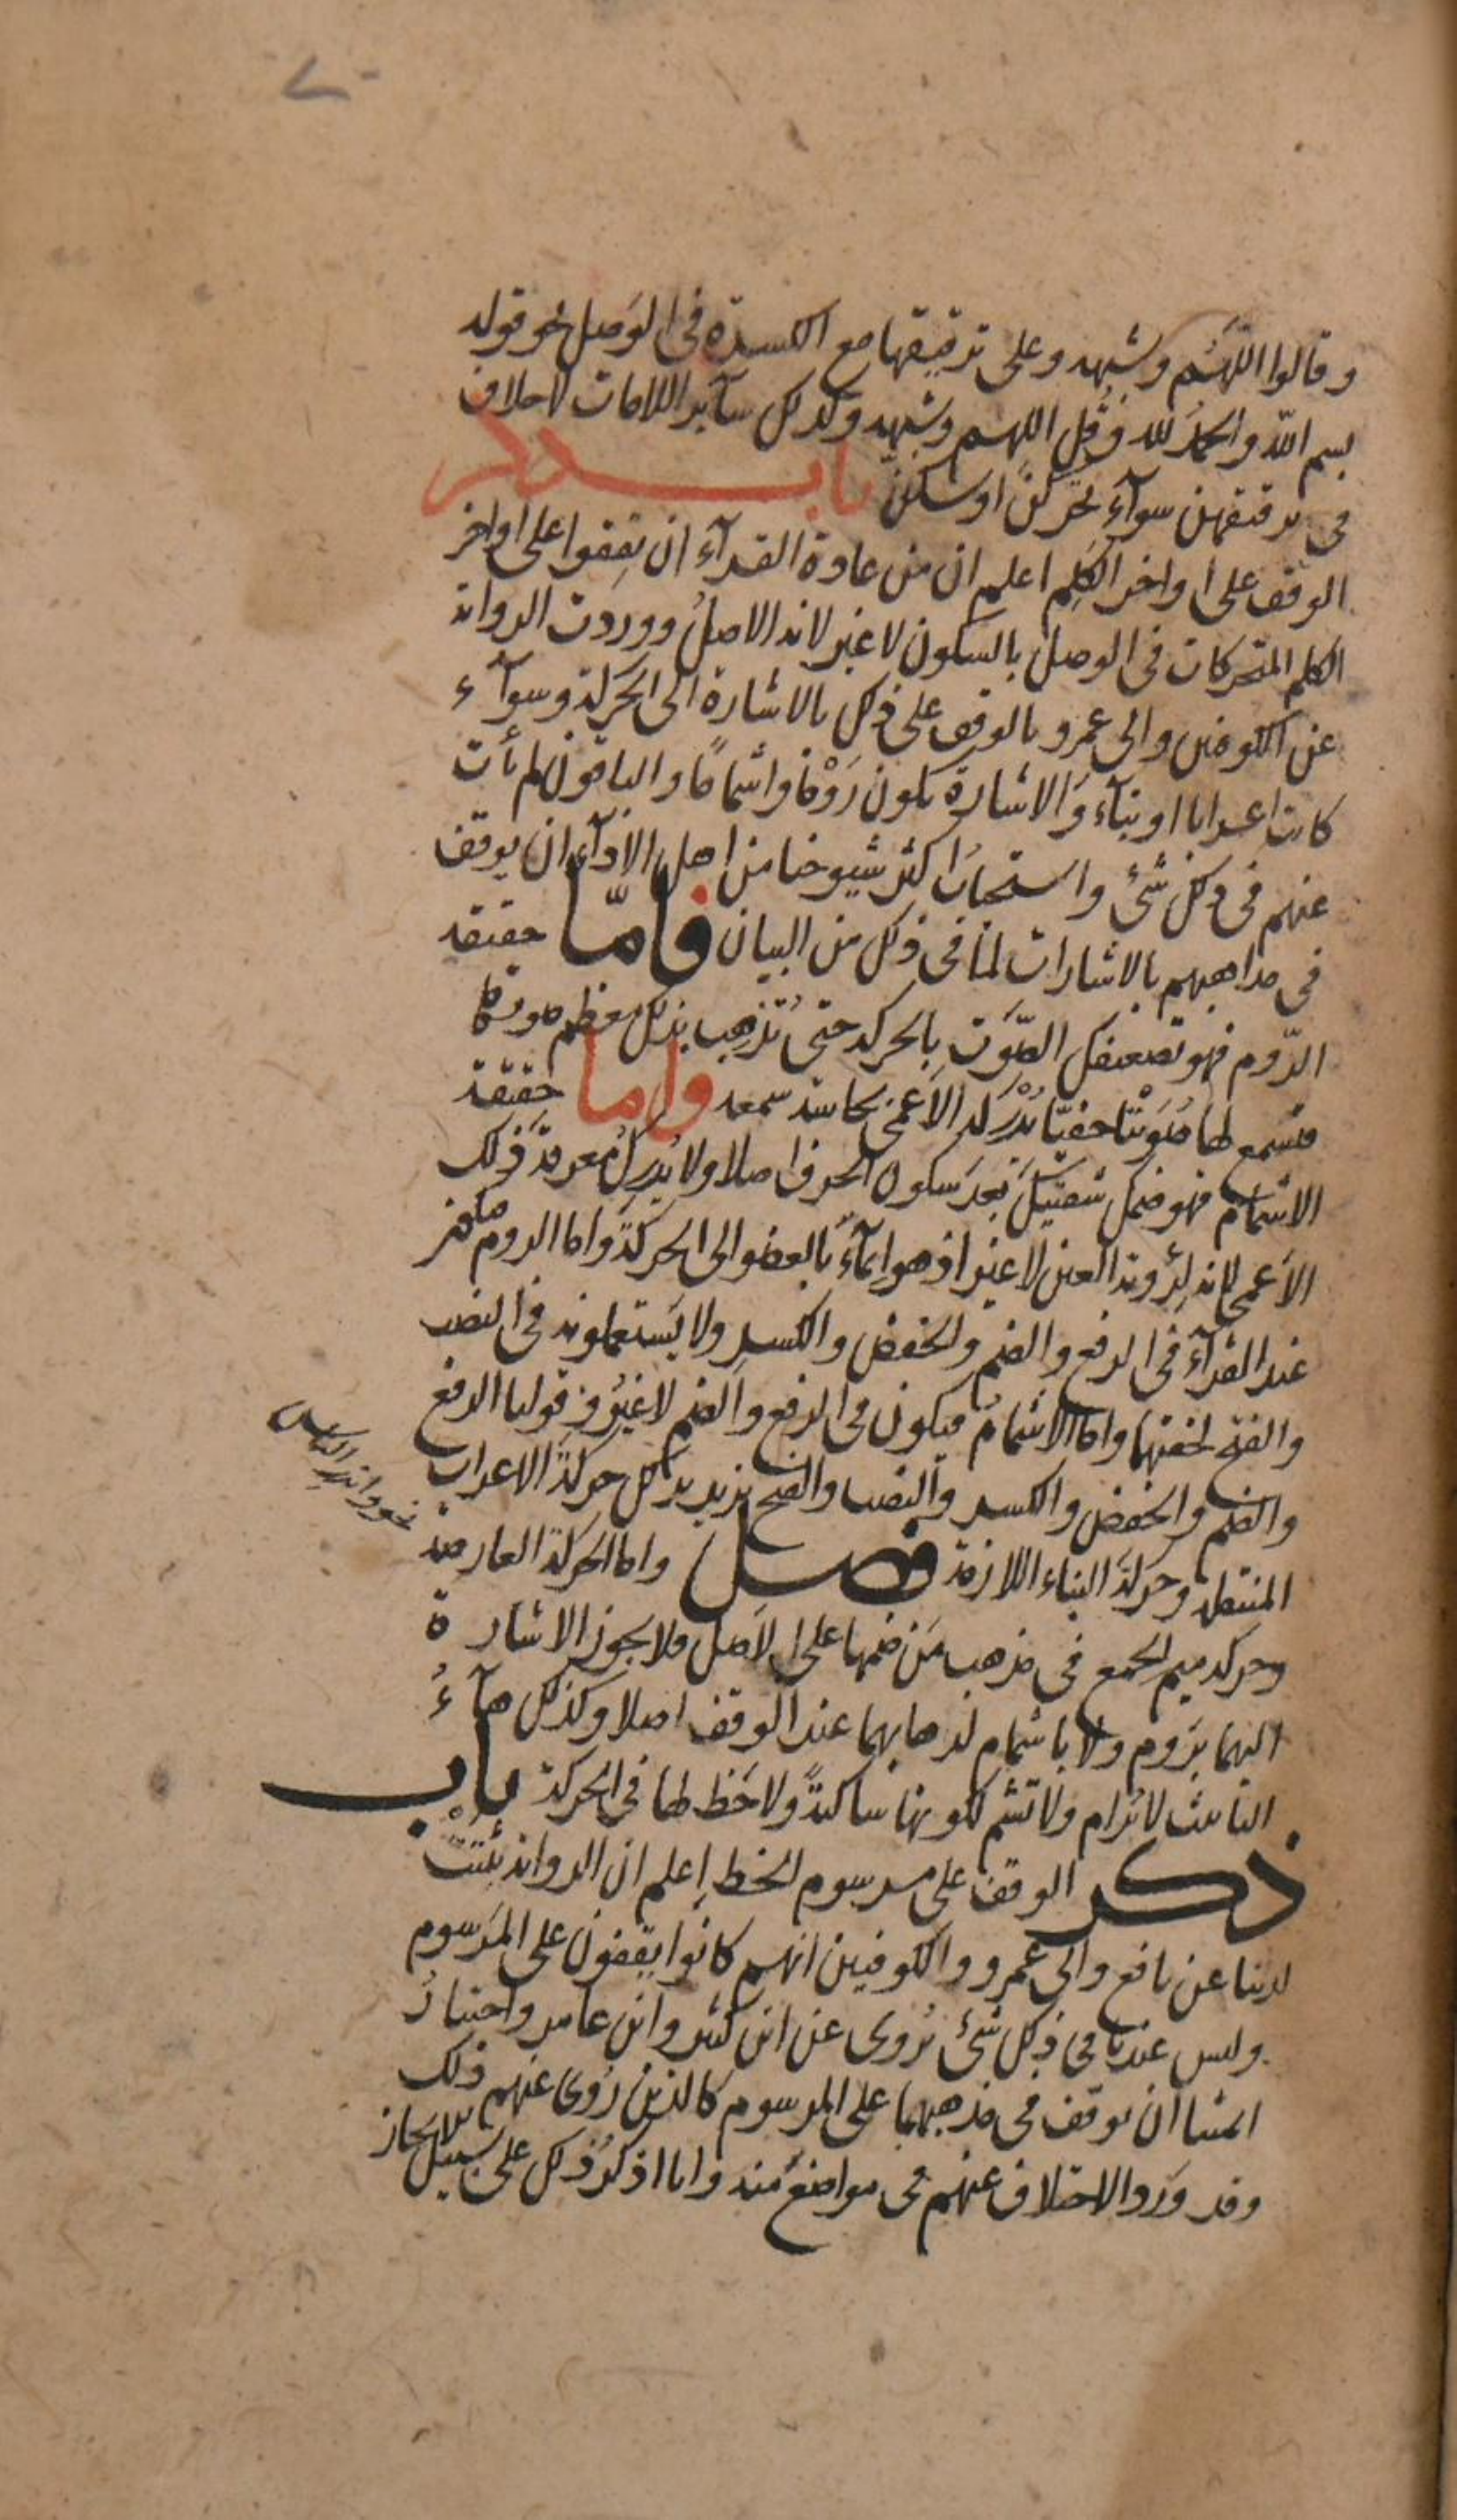 وقالوا اللهم وشبهه وعلى ترقيقها مع الكسرة فى الوصل نحو قوله
بسم الله والحمد لله وقل اللهم وشبهه وكذلك سآير اللامات لا خلاف
فى ترقيقهن سوآء تحركن او سكنّ باب ذكر
الوقف على اواخر الكلم اعلم ان من عادة القرآء ان يقفوا على اواخر
الكلم المتحركات فى الوصل بالسكون لا غير لانه الاصل ووردت الرواية
عن الكوفيين وابى عمرو بالوقف على ذلك بالاشارة الى الحركة وسوآء
كانت اعرابا او بنآء والاشارة تكون رَوْمًا واشمامًا والباقون لم يأت
عنهم فى ذلك شئ واستحباب اكثر شيوخنا من اهل الادآء ان يوقف
فى مذاهبهم بالاشارات لما فى ذلك من البيان فامّا حقيقة
الرّوم فهو تضعيفك الصّوت بالحركة حتى تُذهِب بذلك معظم صوتها
فتسمع لها صُوَيْتًا خفيّا يُدْركه الاعمى بحاسة سمعه واما حقيقة
الاشمام فهو ضمك شفتيكَ بعد سكون الحرف اصلا ولا يُدرِك معرفة ذلك
الاعمى لانه لرؤية العين لا غير اذ هو ايمآء بالعضو الى الحركة واما الروم فيكون
عند القرآء فى الرفع والضم والخفض والكسر ولا يستعملونه فى النصب
والفتح لخفتهما واما الاشمام فيكون فى الرفع والضم لا غير وقولنا الرفع
والضم والخفض والكسر والنصب والفتح نريد بذلك حركة الاعراب
المنتقلة وحركة البناء اللازمة فصل واما الحركة العارضة
نحو وانذر الناس
وحركة ميم الجمع فى مذهب مَن ضمها على الاصل فلا يجوز الاشارة
اليهما برَوم ولا باشمام لذهابهما عند الوقف اصلا وكذلك هآءُ
التأنيث لا تُرام ولا تشم لكونها ساكنةً ولا حَظ لها فى الحركة باب
ذكر الوقف على مرسوم الخط اعلم ان الرواية ثبتت
لدينا عن نافع وابى عمرو والكوفيين انهم كانوا يقفون على المرسوم
وليس عندنا فى ذلك شئ يُروى عن ابن كثير وابن عامر واختيار
ائمتنا ان يوقف فى مذهبهما على المرسوم كالذين رُوى عنهم ذلك
وقد وَرَد الاختلاف عنهم فى مواضع منه وانا اذكرُ ذلك على سبيل الايجاز